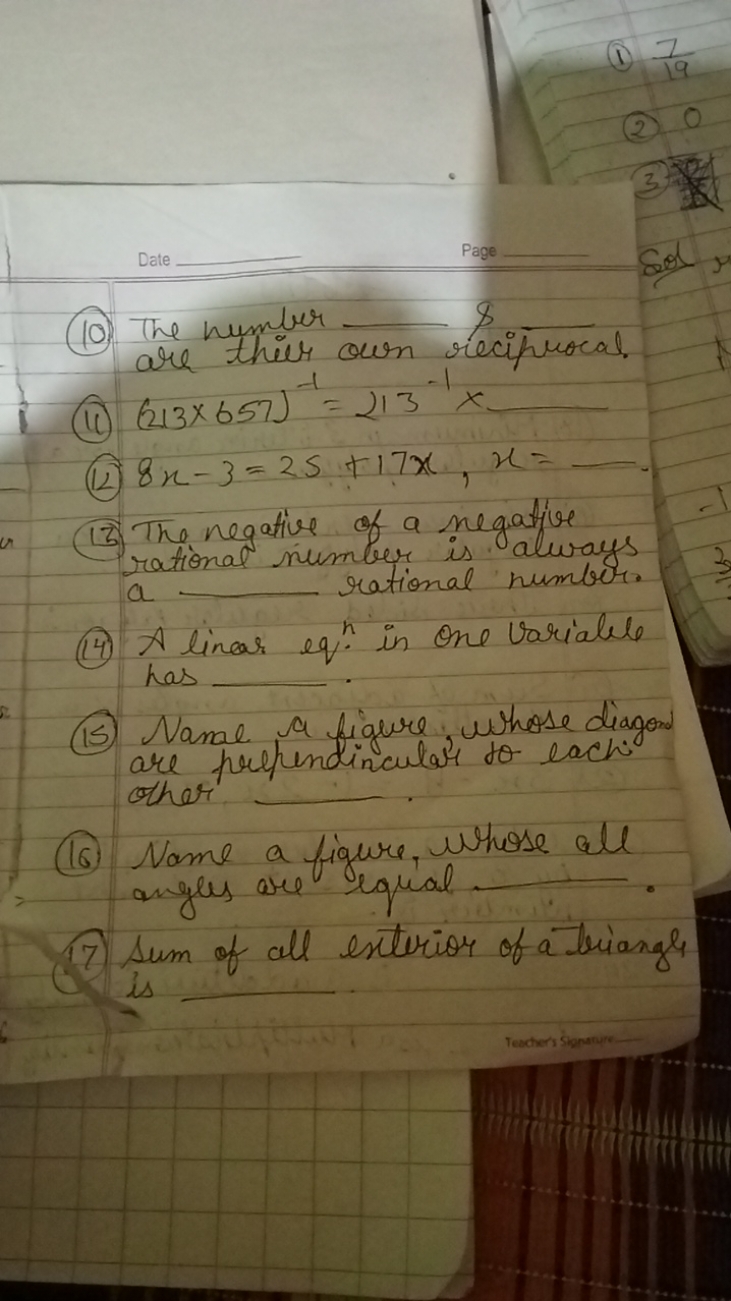 ① 7/19
② 0
③
Sol
Date
Page
⑩ The number ______ & ______
are their own reciprocal.
⑪ (213×657)⁻¹ = 213⁻¹ × ______
⑫ 8x - 3 = 25 + 17x , x = ____.
⑬ The negative of a negative
rational number is always
a ______ rational number.
⑭ A linear eqⁿ. in one variable
has ______ .
⑮ Name a figure, whose diagonal
are prependincular to each
other ______ .
⑯ Name a figure, whose all
angles are equal ______ .
⑰ Sum of all exterior of a triangle
is ______ .
Teacher's Signature
-1